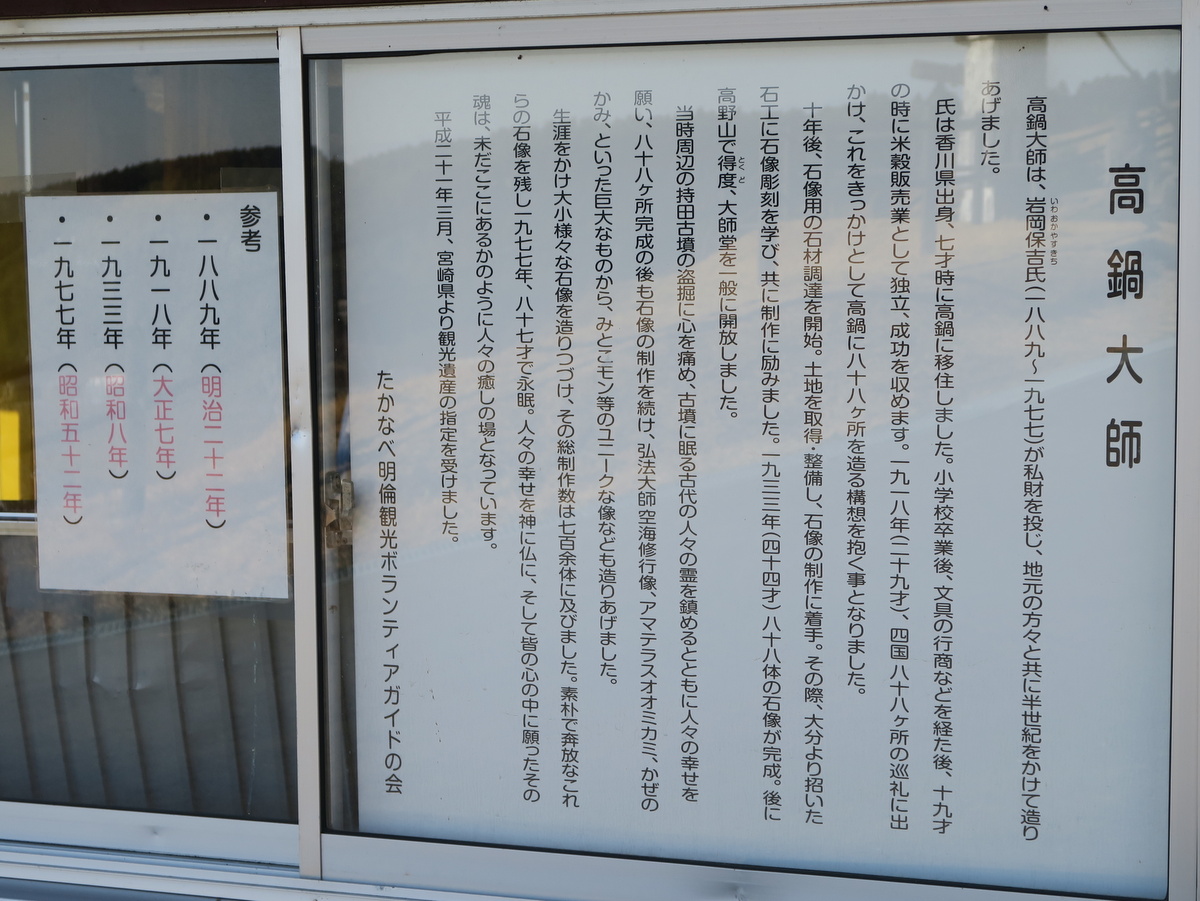 高鍋大師
高鍋大師は、岩岡保吉氏(一八八九～一九七七)が私財を投じ、地元の方々と共に半世紀をかけて造り
いわおかやすきち
あげました。
氏は香川県出身、七才時に高鍋に移住しました。小学校卒業後、文具の行商などを経た後、十九才
の時に米穀販売業として独立、成功を収めます。一九一八年(二十九才)、四国八十八ヶ所の巡礼に出
かけ、これをきっかけとして高鍋に八十八ヶ所を造る構想を抱く事となりました。
十年後、石像用の石材調達を開始。土地を取得・整備し、石像の制作に着手。その際、大分より招いた
石工に石像彫刻を学び、共に制作に励みました。一九三三年(四十四才)八十八体の石像が完成。後に
高野山で得度、大師堂を一般に開放しました。
とくど
当時周辺の持田古墳の盗掘に心を痛め、古墳に眠る古代の人々の霊を鎮めるとともに人々の幸せを
願い、八十八ヶ所完成の後も石像の制作を続け、弘法大師空海修行像、アマテラスオオミカミ、かぜの
かみ、といった巨大なものから、みとこモン等のユニークな像なども造りあげました。
生涯をかけ大小様々な石像を造りつづけ、その総制作数は七百余体に及びました。素朴で奔放なこれ
らの石像を残し一九七七年、八十七才で永眠。人々の幸せを神に仏に、そして皆の心の中に願ったその
魂は、未だここにあるかのように人々の癒しの場となっています。
平成二十一年三月、宮崎県より観光遺産の指定を受けました。
たかなべ明倫観光ボランティアガイドの会
参考
・一八八九年(明治二十二年)
・一九一八年(大正七年)
・一九三三年(昭和八年)
・一九七七年(昭和五十二年)